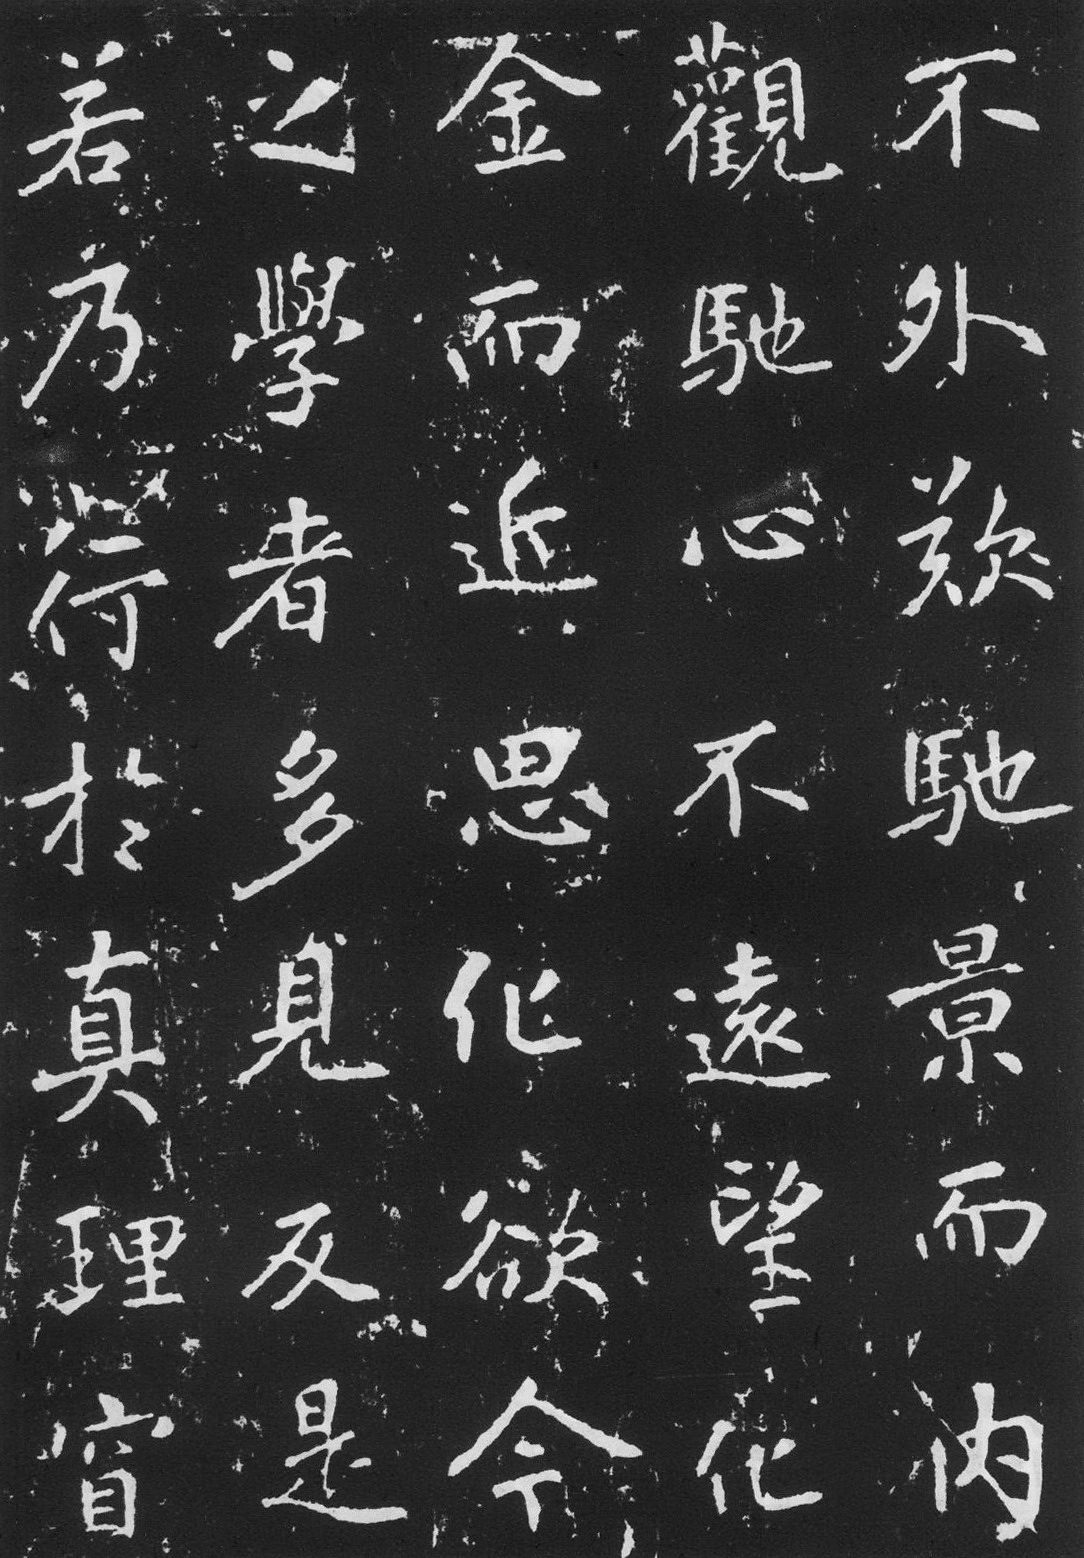 不外欻馳景而內
觀馳心不遠望化
金而近思化欲今
之學者多見反是
若乃於真理窅